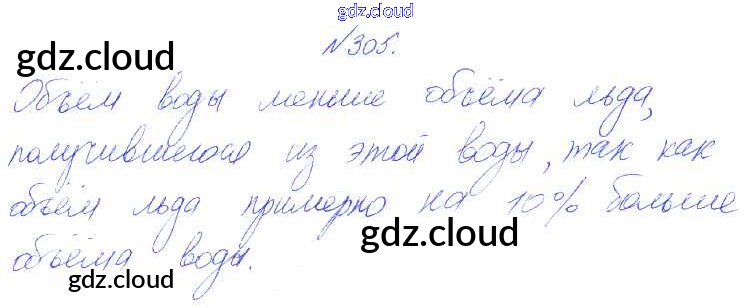 gdz.cloud
№305.
gdz.cloud
gdz.cloud
Объём воды меньше объёма льда,
получившегося из этой воды, так как
объём льда примерно на 10% больше
gdz.cloud
объёма воды.
gdz.cloud